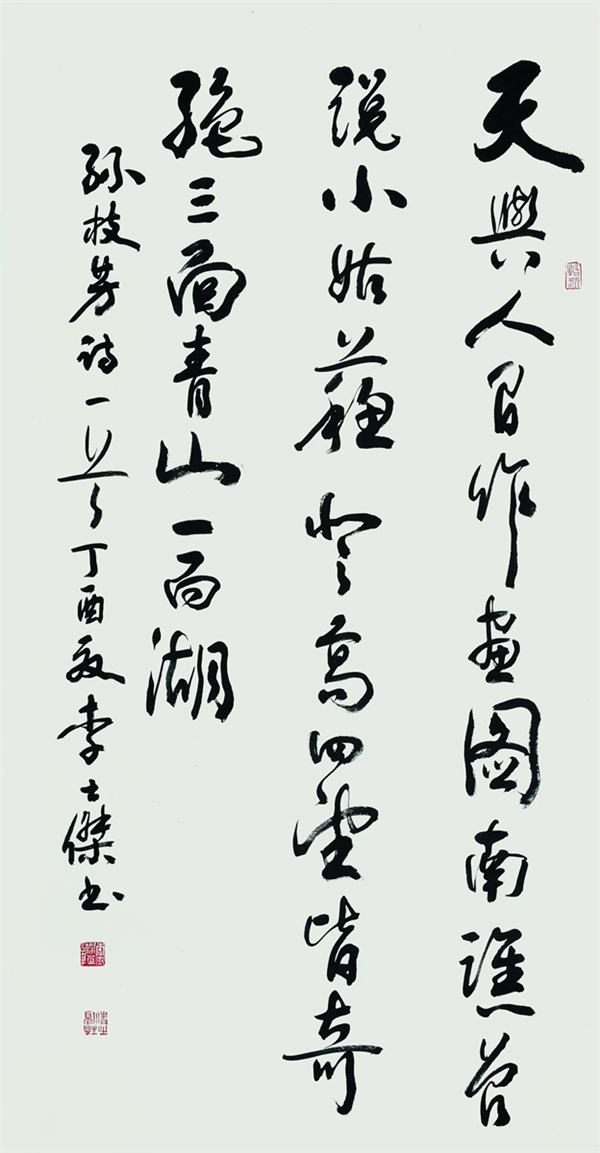 天與人間作畫图南譙曾
說小姑蘇登高四望皆奇
絕三面青山一面湖
孫枝芳詩一首丁酉夏李士傑书